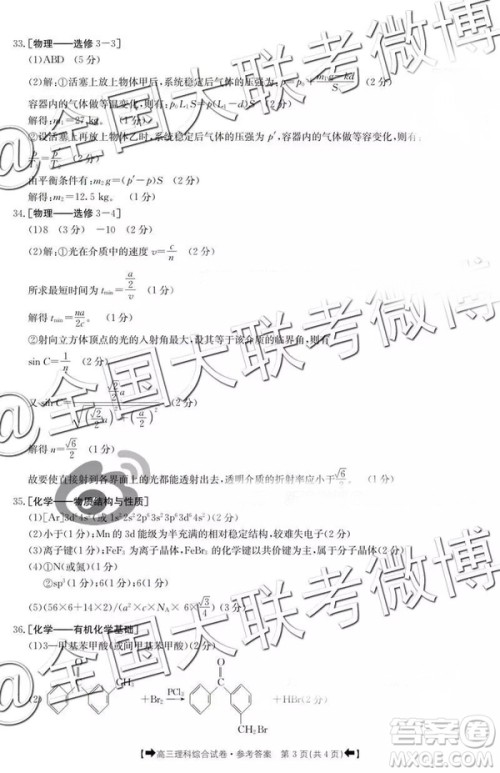 33.[物理——选修3-3]
(1)ABD (5分)
(2)解:①活塞上放上物体甲后,系统稳定后气体的压强为:p=p₀+
容器内的气体做等温变化,则有:p₀L₁S=p(L₁-d)S (2分)
解得:m₁=27 kg。 (1分)
②设活塞上再放上物体乙时,系统稳定后气体的压强为p′,容器内的气体做等容变化,则有:
(2分)
由平衡条件有:m₂g=(p′-p)S (2分)
解得:m₂=12.5 kg。 (1分)
34.[物理——选修3-4]
(1)8 (3分) -10 (2分)
(2)解:①光在介质中的速度v=c/n (2分)
所求最短时间为t_min=(a/2)/v (1分)
解得t_min=na/2c。 (1分)
②射向立方体顶点的光的入射角最大,设其等于光在该介质中的临界角,则有:
sin C=1/n (2分)
又sin C= (2分)
解得n=√6/2 (1分)
故要使直接射到各界面上的光都能透射出去,透明介质的折射率应 (1分)
35.[化学——物质结构与性质]
(1)[Ar]3d⁶4s²(或1s²2s²2p⁶3s²3p⁶3d⁶4s²)(2分)
(2)小于(1分);Mn的3d能级为半充满的相对稳定结构,较难失去电子(2分)
(3)离子键(1分);FeF₃为离子晶体,FeBr₃的化学键以共价键为主,属于分子晶体(2分)
(4)①N(或氮)(1分)
②sp³(1分);6(1分);6(1分)
(5)(56×6+14×2)/(a²×c×N_A×6×√3/4)(3分)
36.[化学——有机化学基础]
(1)3-甲基苯甲酸(或间甲基苯甲酸)(2分)
(2) O CH₃ +Br₂ PCl₃ → O CH₂Br +HBr(2分)
高三理科综合试卷·参考答案 第3页(共4页)
@全国大联考微博
@全国大联考微博